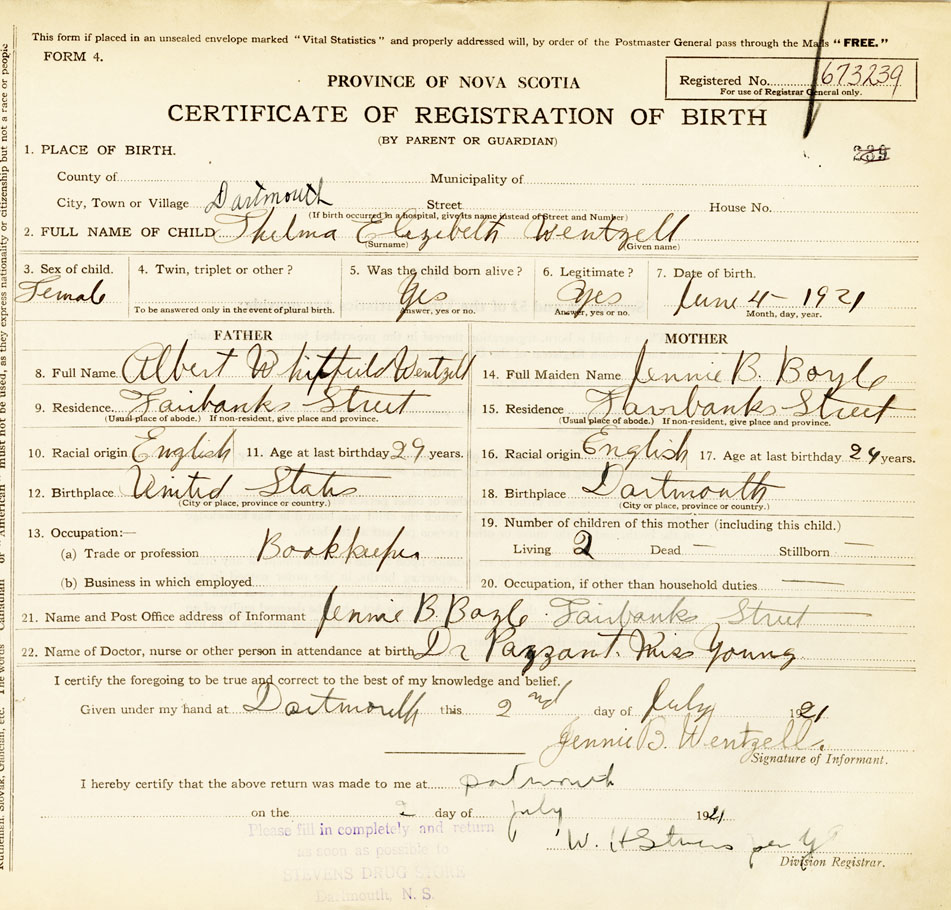 This form if placed in an unsealed envelope marked "Vital Statistics" and properly addressed will, by order of the Postmaster General pass through the Mails "FREE."
FORM 4.
PROVINCE OF NOVA SCOTIA
Registered No. 673239
For use of Registrar General only.
CERTIFICATE OF REGISTRATION OF BIRTH
(BY PARENT OR GUARDIAN)
1. PLACE OF BIRTH.
County of Municipality of
City, Town or Village Dartmouth Street House No.
(If birth occurred in a hospital, give its name instead of Street and Number)
2. FULL NAME OF CHILD Thelma Elizibeth Wentzell
(Surname) (Given name)
3. Sex of child. 4. Twin, triplet or other? 5. Was the child born alive? 6. Legitimate? 7. Date of birth.
Female Yes Yes June 4 - 1921
To be answered only in the event of plural birth. Answer, yes or no. Answer, yes or no. Month, day, year.
FATHER MOTHER
8. Full Name Albert Whitfield Wentzell 14. Full Maiden Name Jennie B. Boyle
9. Residence Fairbanks Street 15. Residence Fairbanks Street
(Usual place of abode.) If non-resident, give place and province. (Usual place of abode.) If non-resident, give place and province.
10. Racial origin English 11. Age at last birthday 29 years. 16. Racial origin English 17. Age at last birthday 24 years.
12. Birthplace United States 18. Birthplace Dartmouth
(City or place, province or country.) (City or place, province or country.)
13. Occupation:— 19. Number of children of this mother (including this child.)
(a) Trade or profession Bookkeeper Living 2 Dead — Stillborn —
(b) Business in which employed 20. Occupation, if other than household duties —
21. Name and Post Office address of Informant Jennie B. Boyle Fairbanks Street
22. Name of Doctor, nurse or other person in attendance at birth Dr Pazzant. Miss Young
I certify the foregoing to be true and correct to the best of my knowledge and belief.
Given under my hand at Dartmouth this 2nd day of July 1921
Jennie B. Wentzell.
Signature of Informant.
I hereby certify that the above return was made to me at Dartmouth
on the 2 day of July 1921
Please fill in completely and return
as soon as possible to
STEVENS DRUG STORE
Dartmouth, N. S.
W. H Stevens per
Division Registrar.